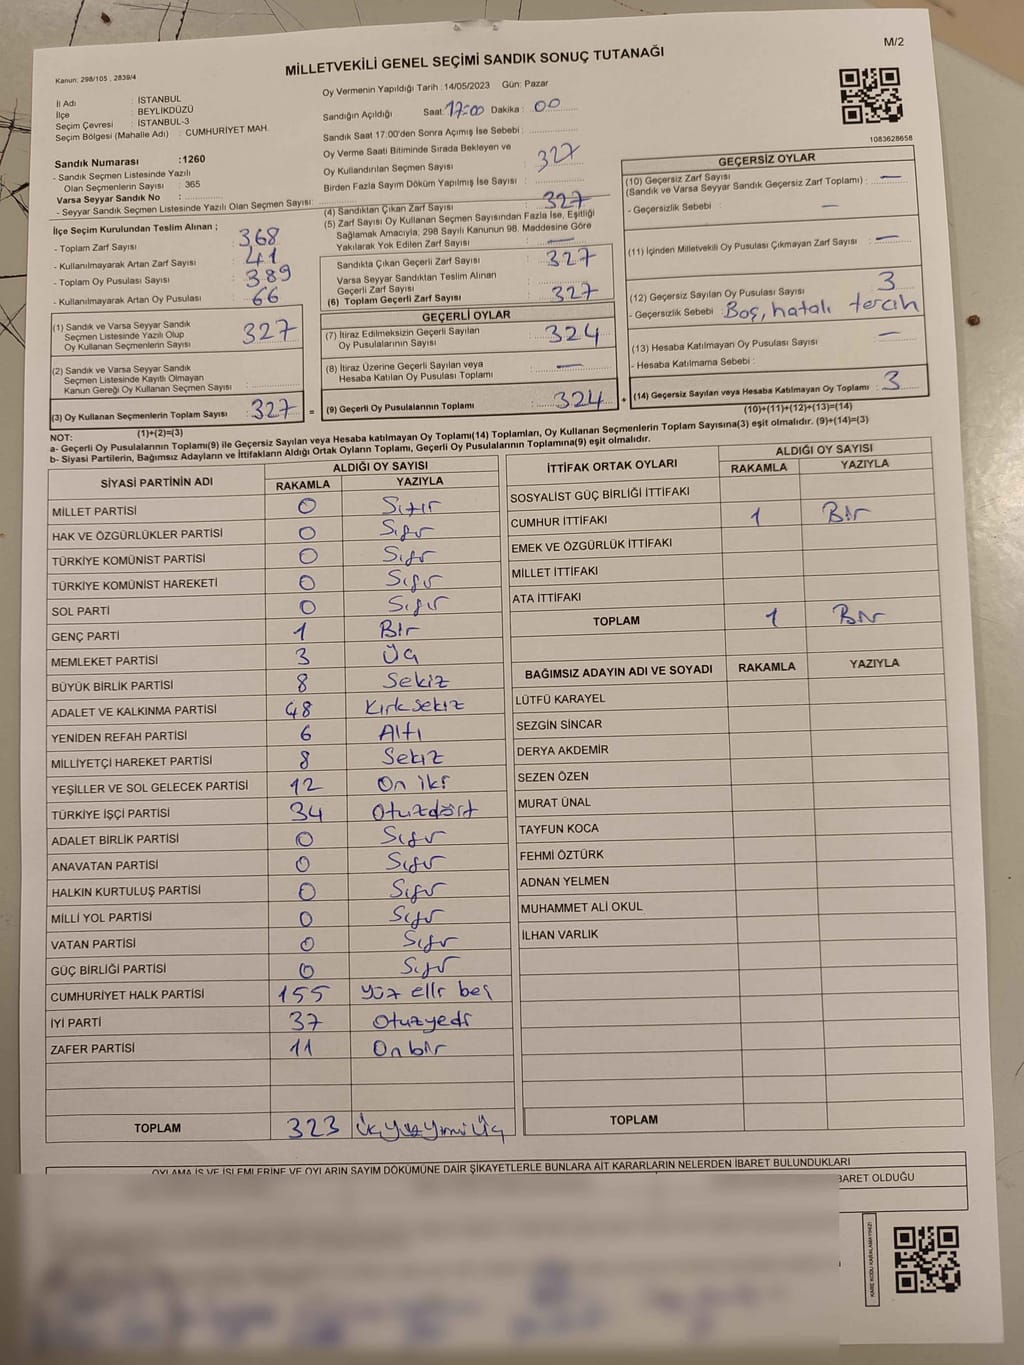 M/2
Kanun: 298/105 , 2839/4
MİLLETVEKİLİ GENEL SEÇİMİ SANDIK SONUÇ TUTANAĞI
İl Adı : İSTANBUL
İlçe : BEYLİKDÜZÜ
Seçim Çevresi : İSTANBUL-3
Seçim Bölgesi (Mahalle Adı) : CUMHURİYET MAH.
Sandık Numarası :1260
- Sandık Seçmen Listesinde Yazılı
Olan Seçmenlerin Sayısı : 365
Varsa Seyyar Sandık No :
- Seyyar Sandık Seçmen Listesinde Yazılı Olan Seçmen Sayısı:
Oy Vermenin Yapıldığı Tarih :14/05/2023 Gün: Pazar
Sandığın Açıldığı Saat: 17:00 Dakika : 00
Sandık Saat 17:00'den Sonra Açımış İse Sebebi :
Oy Verme Saati Bitiminde Sırada Bekleyen ve
Oy Kullandırılan Seçmen Sayısı : 327
Birden Fazla Sayım Döküm Yapılmış İse Sayısı :
1083628658
İlçe Seçim Kurulundan Teslim Alınan ;
- Toplam Zarf Sayısı : 368
- Kullanılmayarak Artan Zarf Sayısı : 41
- Toplam Oy Pusulası Sayısı : 389
- Kullanılmayarak Artan Oy Pusulası : 66
(1) Sandık ve Varsa Seyyar Sandık
Seçmen Listesinde Yazılı Olup
Oy Kullanan Seçmenlerin Sayısı : 327
(2) Sandık ve Varsa Seyyar Sandık
Seçmen Listesinde Kayıtlı Olmayan
Kanun Gereği Oy Kullanan Seçmen Sayısı :
(3) Oy Kullanan Seçmenlerin Toplam Sayısı : 327 =
(1)+(2)=(3)
(4) Sandıktan Çıkan Zarf Sayısı : 327
(5) Zarf Sayısı Oy Kullanan Seçmen Sayısından Fazla İse, Eşitliği
Sağlamak Amacıyla, 298 Sayılı Kanunun 98. Maddesine Göre
Yakılarak Yok Edilen Zarf Sayısı : —
Sandıkta Çıkan Geçerli Zarf Sayısı : 327
Varsa Seyyar Sandıktan Teslim Alınan
Geçerli Zarf Sayısı :
(6) Toplam Geçerli Zarf Sayısı : 327
GEÇERLİ OYLAR
(7) İtiraz Edilmeksizin Geçerli Sayılan
Oy Pusulalarının Sayısı : 324
(8) İtiraz Üzerine Geçerli Sayılan veya
Hesaba Katılan Oy Pusulası Toplamı : —
(9) Geçerli Oy Pusulalarının Toplamı : 324 +
GEÇERSİZ OYLAR
(10) Geçersiz Zarf Sayısı
(Sandık ve Varsa Seyyar Sandık Geçersiz Zarf Toplamı) : —
- Geçersizlik Sebebi : —
(11) İçinden Milletvekili Oy Pusulası Çıkmayan Zarf Sayısı : —
(12) Geçersiz Sayılan Oy Pusulası Sayısı : 3
- Geçersizlik Sebebi : Boş, hatalı tercih
(13) Hesaba Katılmayan Oy Pusulası Sayısı : —
- Hesaba Katılmama Sebebi :
(14) Geçersiz Sayılan veya Hesaba Katılmayan Oy Toplamı : 3
(10)+(11)+(12)+(13)=(14)
NOT:
a- Geçerli Oy Pusulalarının Toplamı(9) ile Geçersiz Sayılan veya Hesaba katılmayan Oy Toplamı(14) Toplamları, Oy Kullanan Seçmenlerin Toplam Sayısına(3) eşit olmalıdır. (9)+(14)=(3)
b- Siyasi Partilerin, Bağımsız Adayların ve İttifakların Aldığı Ortak Oyların Toplamı, Geçerli Oy Pusulalarının Toplamına(9) eşit olmalıdır.
SİYASİ PARTİNİN ADI ALDIĞI OY SAYISI
RAKAMLA YAZIYLA
MİLLET PARTİSİ 0 Sıfır
HAK VE ÖZGÜRLÜKLER PARTİSİ 0 Sıfır
TÜRKİYE KOMÜNİST PARTİSİ 0 Sıfır
TÜRKİYE KOMÜNİST HAREKETİ 0 Sıfır
SOL PARTİ 0 Sıfır
GENÇ PARTİ 1 Bir
MEMLEKET PARTİSİ 3 Üç
BÜYÜK BİRLİK PARTİSİ 8 Sekiz
ADALET VE KALKINMA PARTİSİ 48 Kırksekiz
YENİDEN REFAH PARTİSİ 6 Altı
MİLLİYETÇİ HAREKET PARTİSİ 8 Sekiz
YEŞİLLER VE SOL GELECEK PARTİSİ 12 On iki
TÜRKİYE İŞÇİ PARTİSİ 34 Otuzdört
ADALET BİRLİK PARTİSİ 0 Sıfır
ANAVATAN PARTİSİ 0 Sıfır
HALKIN KURTULUŞ PARTİSİ 0 Sıfır
MİLLİ YOL PARTİSİ 0 Sıfır
VATAN PARTİSİ 0 Sıfır
GÜÇ BİRLİĞİ PARTİSİ 0 Sıfır
CUMHURİYET HALK PARTİSİ 155 yüz elli beş
İYİ PARTİ 37 Otuzyedi
ZAFER PARTİSİ 11 Onbir
TOPLAM 323 Üçyüzyirmiüç
İTTİFAK ORTAK OYLARI ALDIĞI OY SAYISI
RAKAMLA YAZIYLA
SOSYALİST GÜÇ BİRLİĞİ İTTİFAKI
CUMHUR İTTİFAKI 1 Bir
EMEK VE ÖZGÜRLÜK İTTİFAKI
MİLLET İTTİFAKI
ATA İTTİFAKI
TOPLAM 1 Bir
BAĞIMSIZ ADAYIN ADI VE SOYADI RAKAMLA YAZIYLA
LÜTFÜ KARAYEL
SEZGİN SİNCAR
DERYA AKDEMİR
SEZEN ÖZEN
MURAT ÜNAL
TAYFUN KOCA
FEHMİ ÖZTÜRK
ADNAN YELMEN
MUHAMMET ALİ OKUL
İLHAN VARLIK
TOPLAM
OYLAMA İŞ VE İŞLEMLERİNE VE OYLARIN SAYIM DÖKÜMÜNE DAİR ŞİKAYETLERLE BUNLARA AİT KARARLARIN NELERDEN İBARET BULUNDUKLARI
BARET OLDUĞU
KARE KODU KARALAMAYINIZ!